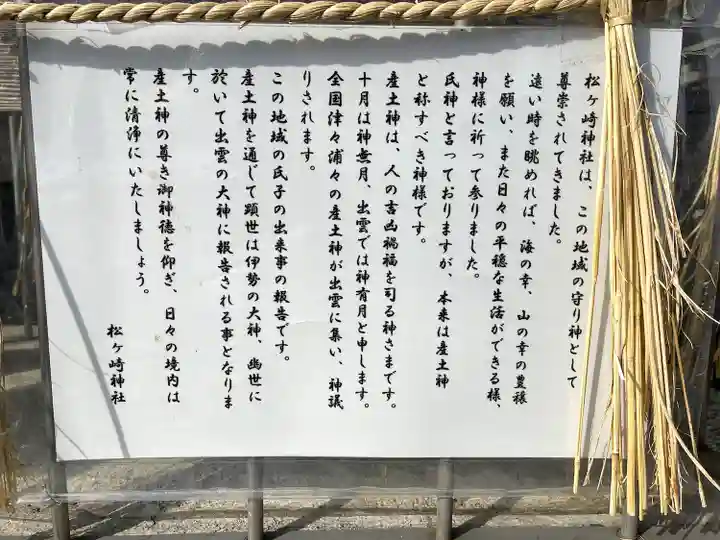 松ヶ崎神社は、この地域の守り神として
尊崇されてきました。
遠い時を眺めれば、海の幸、山の幸の豊穣
を願い、また日々の平穏な生活ができる様、
神様に祈って参りました。
氏神と言っておりますが、本来は産土神
と称すべき神様です。
産土神は、人の吉凶禍福を司る神さまです。
十月は神無月、出雲では神有月と申します。
全国津々浦々の産土神が出雲に集い、神議
りされます。
この地域の氏子の出来事の報告です。
産土神を通じて顕世は伊勢の大神、幽世に
於いて出雲の大神に報告される事となりま
す。
産土神の尊き御神徳を仰ぎ、日々の境内は
常に清浄にいたしましょう。
松ヶ崎神社